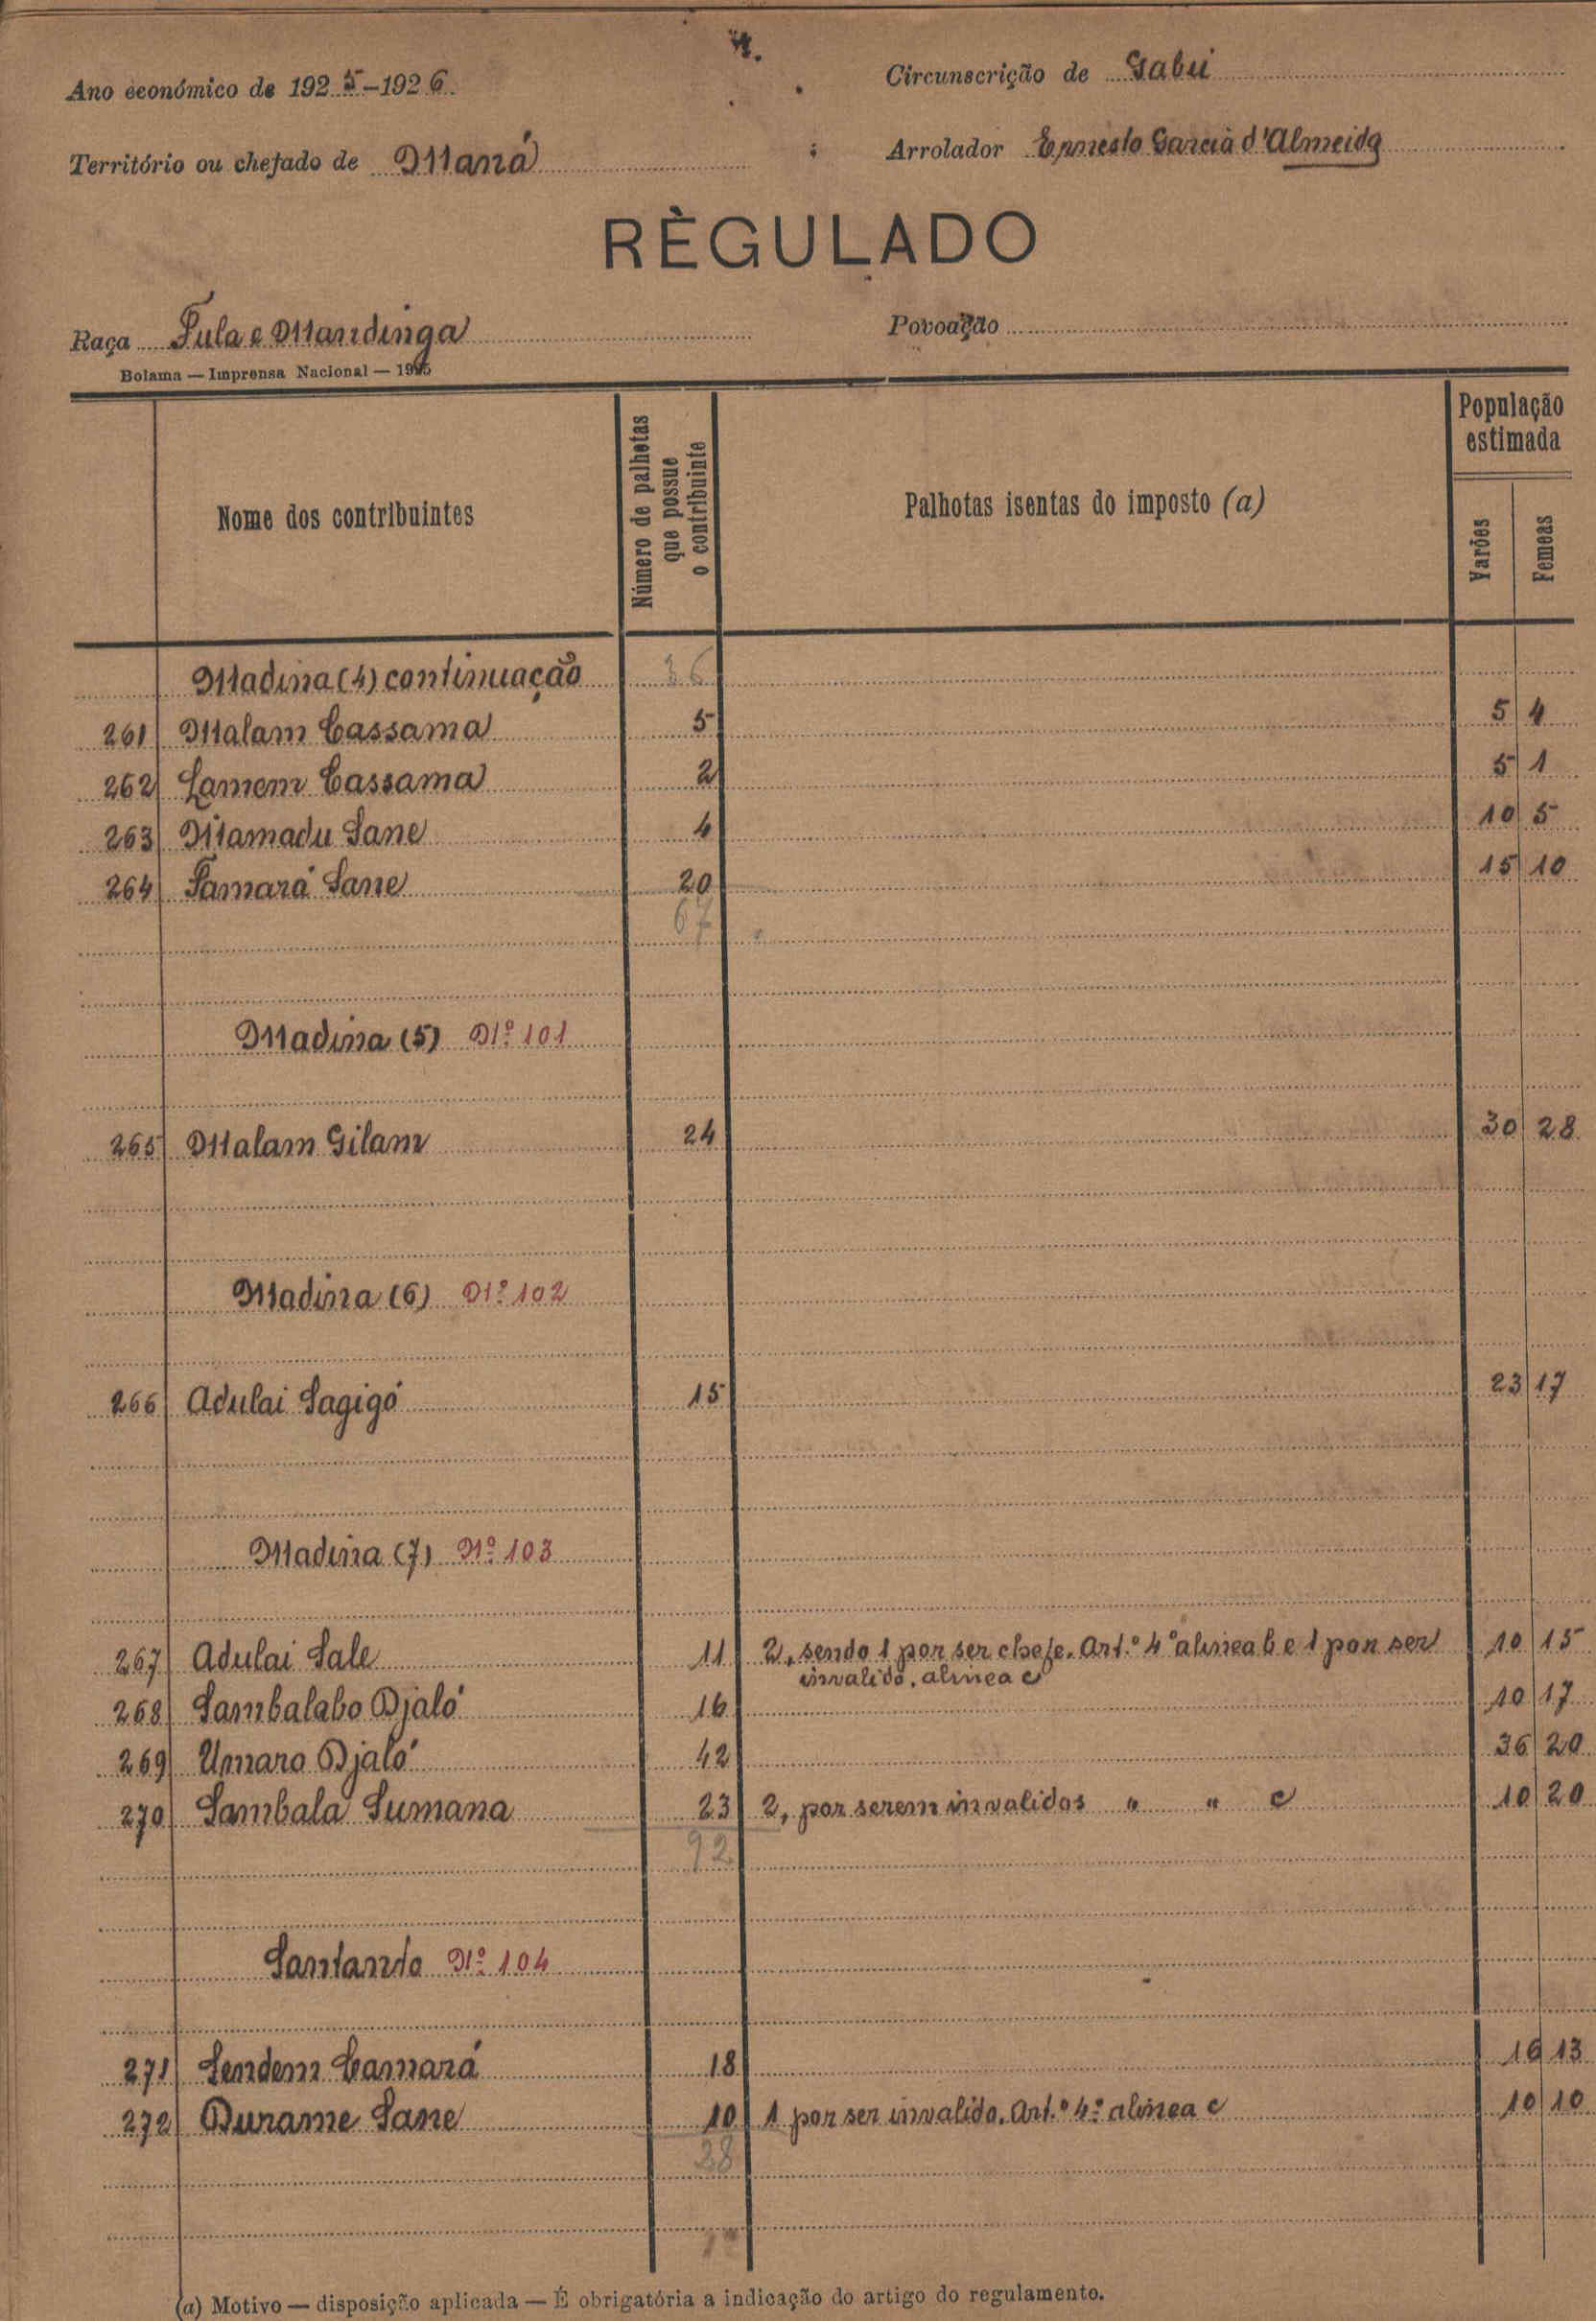 4.
Ano económico de 1925-1926. Circunscrição de Gabú
Território ou chefado de Maná Arrolador Ernesto Garcia d'Almeida
RÈGULADO
Raça Fula e Mandinga Povoação
Bolama — Imprensa Nacional — 1925
Nome dos contribuintes Número de palhotas que possue o contribuinte Palhotas isentas do imposto (a) População estimada Varões Femeas
Madina (4) continuação 36
261 Malam Cassama 5 5 4
262 Lamem Cassama 2 5 1
263 Mamadu Sane 4 10 5
264 Famará Sane 20 15 10
67
Madina (5) Nº 101
265 Malam Gilam 24 30 28
Madina (6) Nº 102
266 Adulai Sagigó 15 23 17
Madina (7) Nº 103
267 Adulai Sale 11 2, sendo 1 por ser chefe. Art.º 4º alinea b e 1 por ser 10 15
invalido, alinea c
268 Sambalabo Djaló 16 10 17
269 Umaro Djaló 42 36 20
270 Sambala Sumana 23 2, por serem invalidos " " c 10 20
92
Santanto Nº 104
271 Sendem Camará 18 16 13
272 Durame Sane 10 1 por ser invalido. Art.º 4º alinea c 10 10
28
(a) Motivo — disposição aplicada — É obrigatória a indicação do artigo do regulamento.